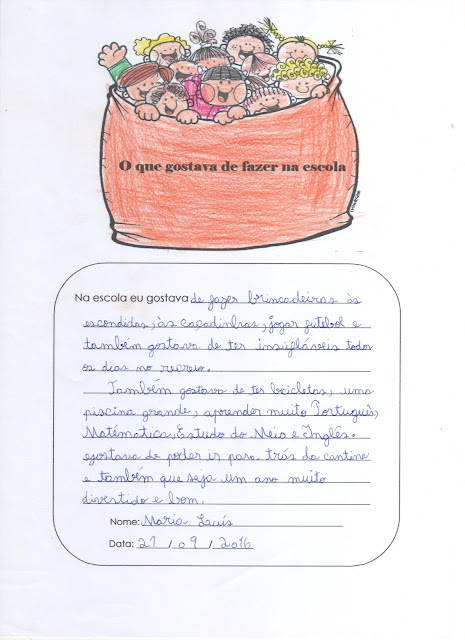 O que gostava de fazer na escola
Na escola eu gostava de fazer brincadeiras às
escondidas, às caçadinhas, jogar futebol e
também gostava de ter insufláveis todos
os dias no recreio.
Também gostava de ter bicicletas, uma
piscina grande, aprender muito Português,
Matématica, Estudo do Meio e Inglês.
gostava de poder ir para trás da cantina
e também que seja um ano muito
divertido e bom.
Nome: Maria Luís
Data: 21 / 09 / 2016